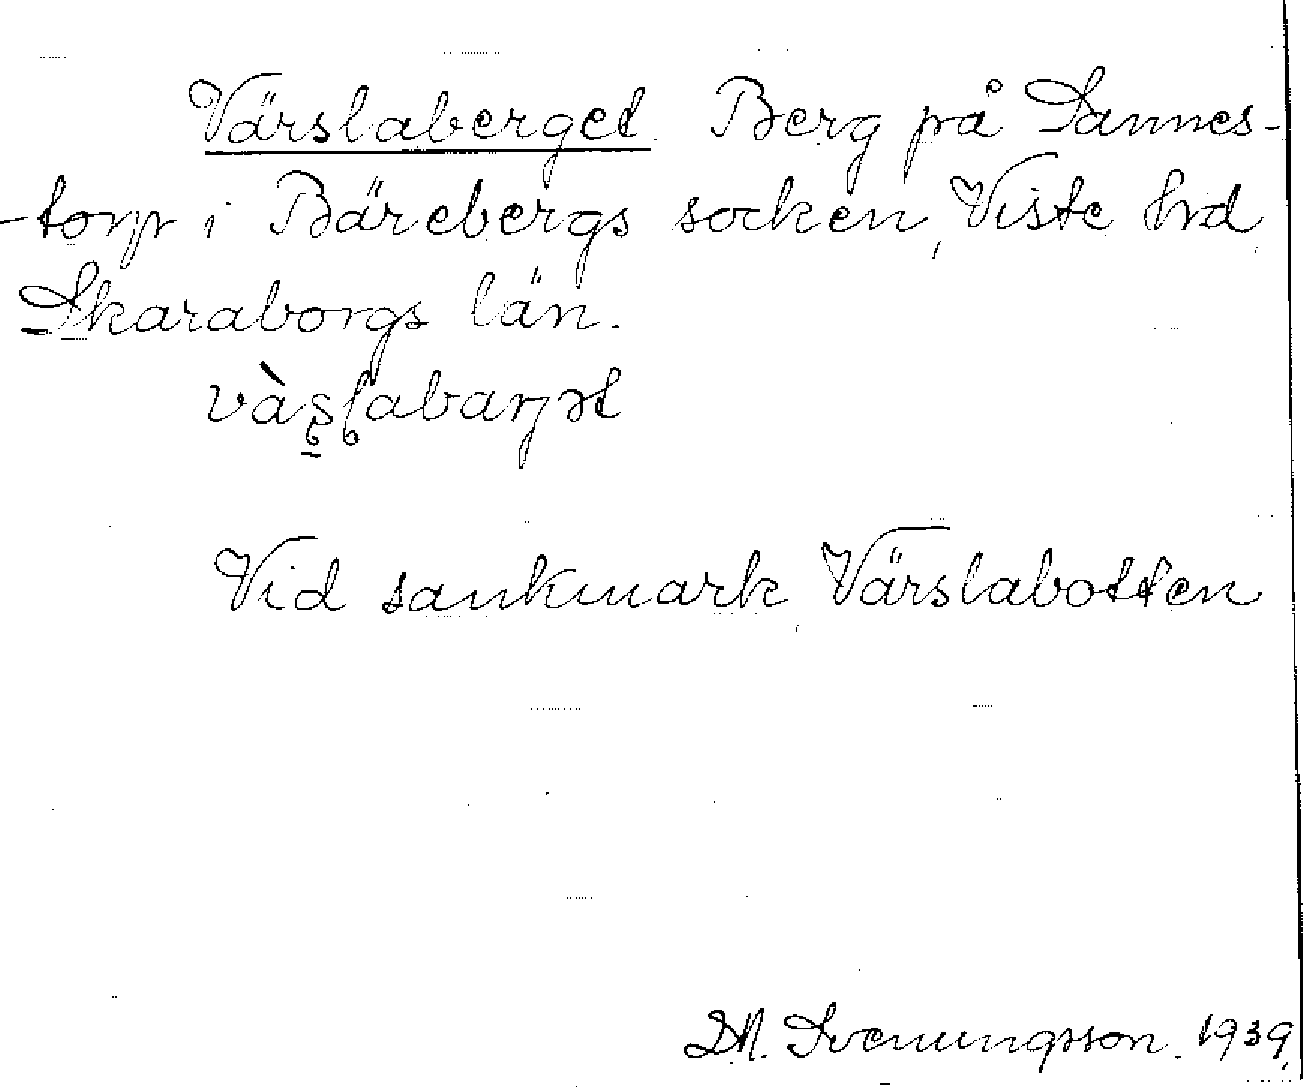 Värslaberget. Berg på Dannes-
-torp i Bärebergs socken, Viste hd,
Skaraborgs län.
Vid sankmark, Värslabotten
D.A. Svenungsson. 1939.